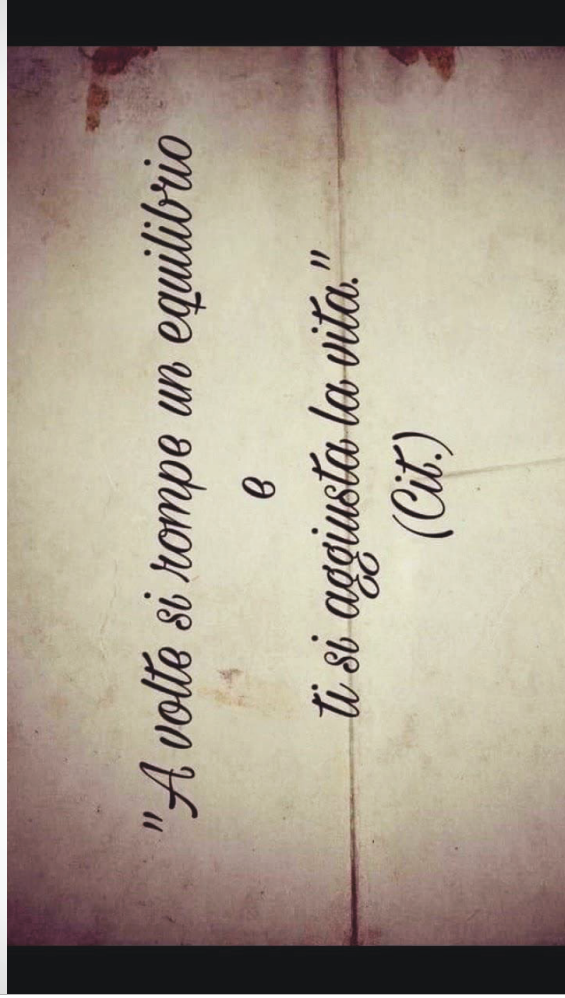 "A volte si rompe un equilibrio
e
ti si aggiusta la vita."
(Cit.)